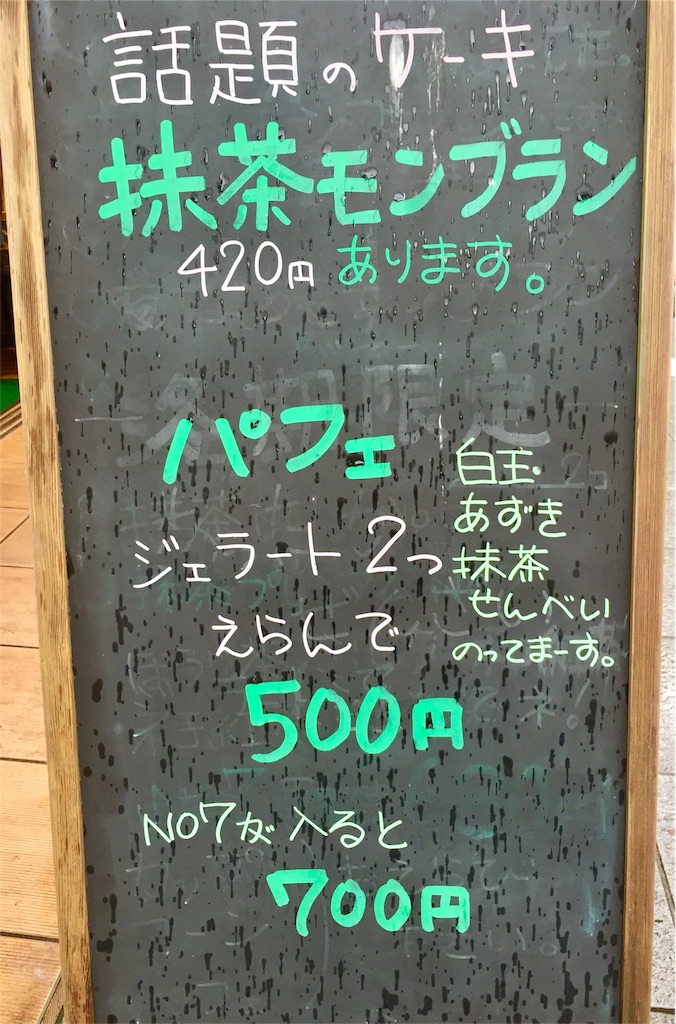 話題のケーキ
抹茶モンブラン
420円 あります。
パフェ
ジェラート 2つ
えらんで
500円
白玉・
あずき
抹茶
せんべい
のってまーす。
NO7が入ると
700円